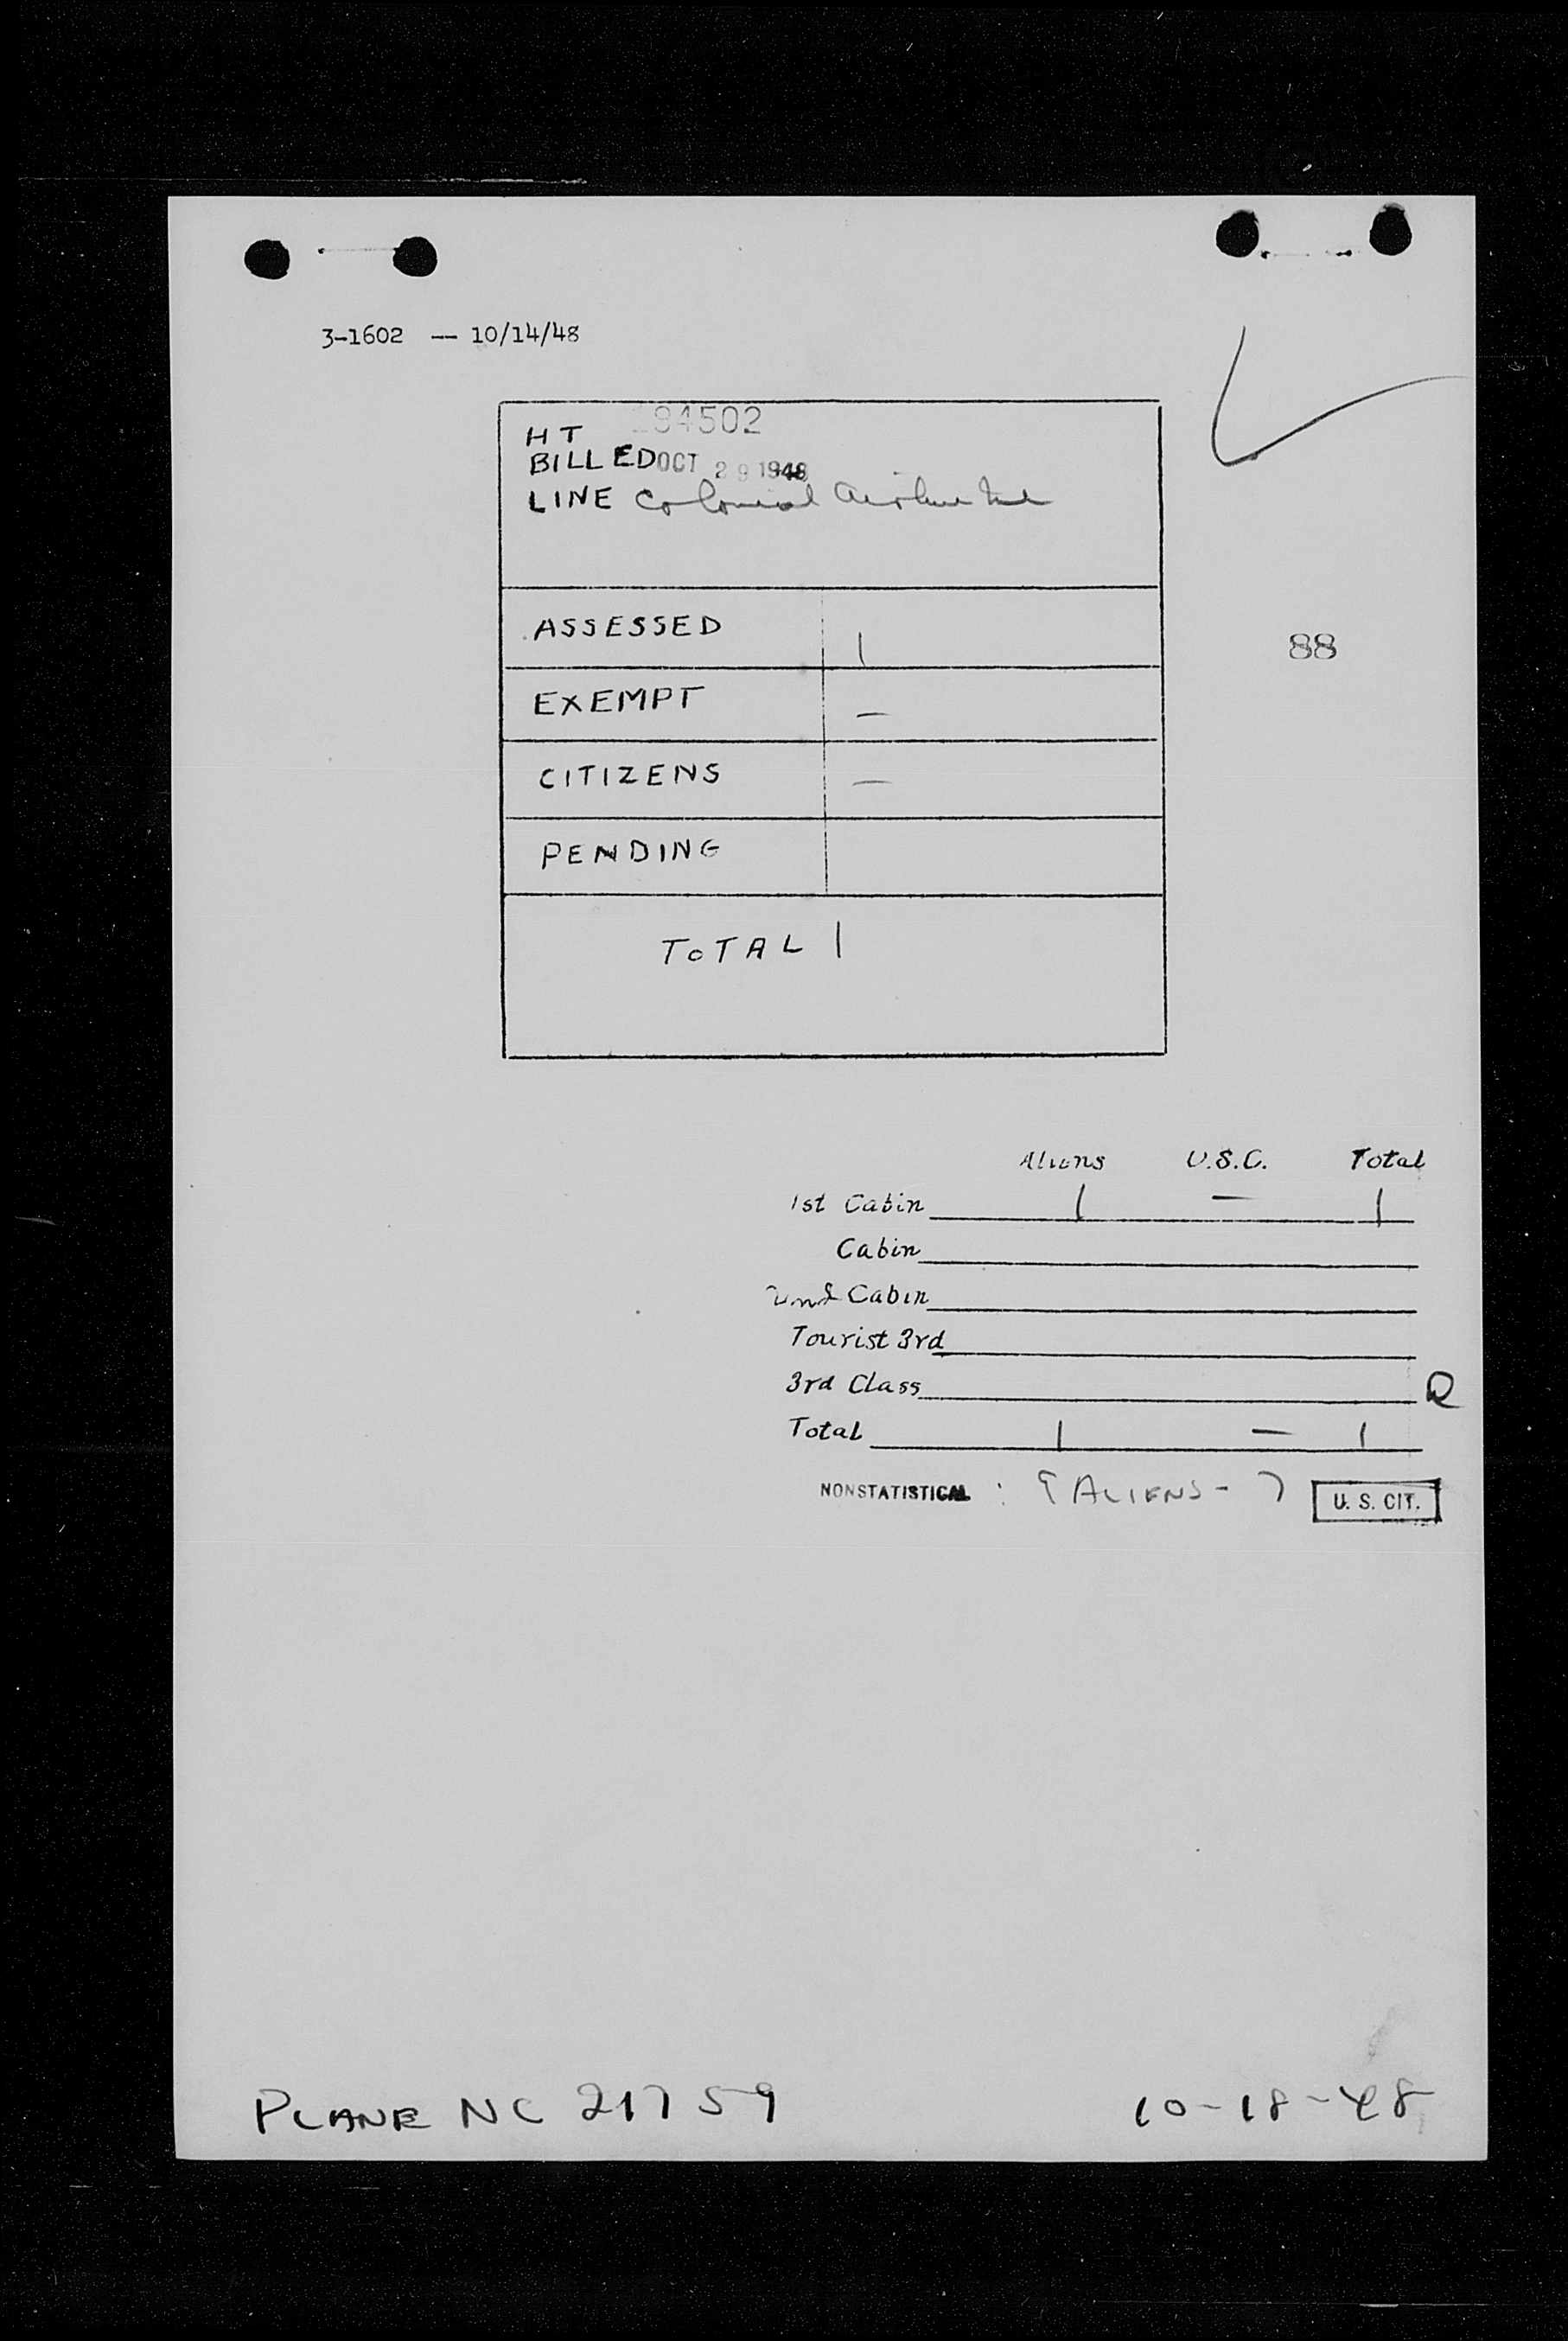 3-1602 — 10/14/48
HT 94502
BILLED OCT 29 1948
LINE Colonial Airline Inc
88
ASSESSED 1
EXEMPT —
CITIZENS —
PENDING
TOTAL 1
Aliens U.S.C. Total
1st Cabin 1 — 1
Cabin
2nd Cabin
Tourist 3rd
3rd Class
Total 1 — 1
NONSTATISTICAL : 9 ALIENS - 7 U. S. CIT.
PLANE NC 21759 10-18-48